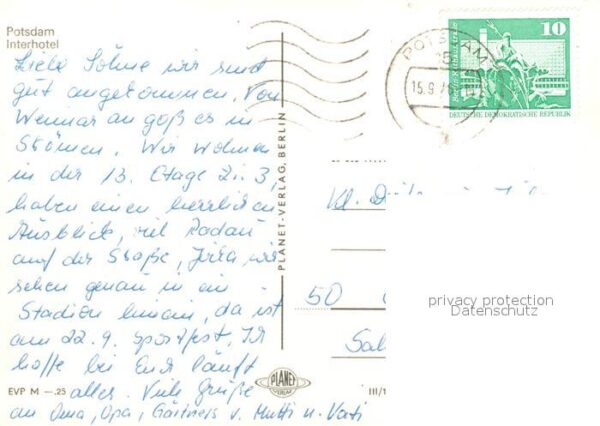 Potsdam
Interhotel
Liebe Söhne wir sind
gut angekommen. Von
Weimar an goß es in
Strömen. Wir wohnen
in der 13. Etage Zi. 3,
haben einen herrlichen
Ausblick, viel Radau
auf der Straße, wir
sehen genau in ein
Stadion hinein, da ist
am 22.9. Sportfest. Ich
hoffe bei Euch läuft
alles. Viele Grüße
an Oma, Opa, Gärtners v. Mutti u. Vati
EVP M —.25
PLANET-VERLAG, BERLIN
PLANET
VERLAG
III/1
POTSDAM
15.9.7
10
DEUTSCHE DEMOKRATISCHE REPUBLIK
Kl.
50
Sal
privacy protection
Datenschutz